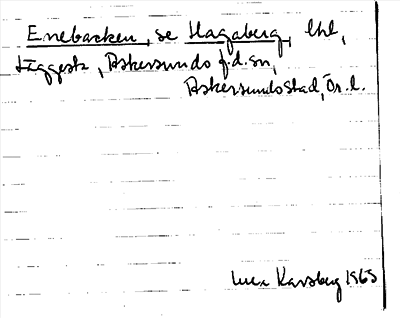 Enebacken, se Hagaberg, lhl,
Läggesta, Askersunds f.d. sn,
Askersunds stad, Ör. l.
Karsberg 1965